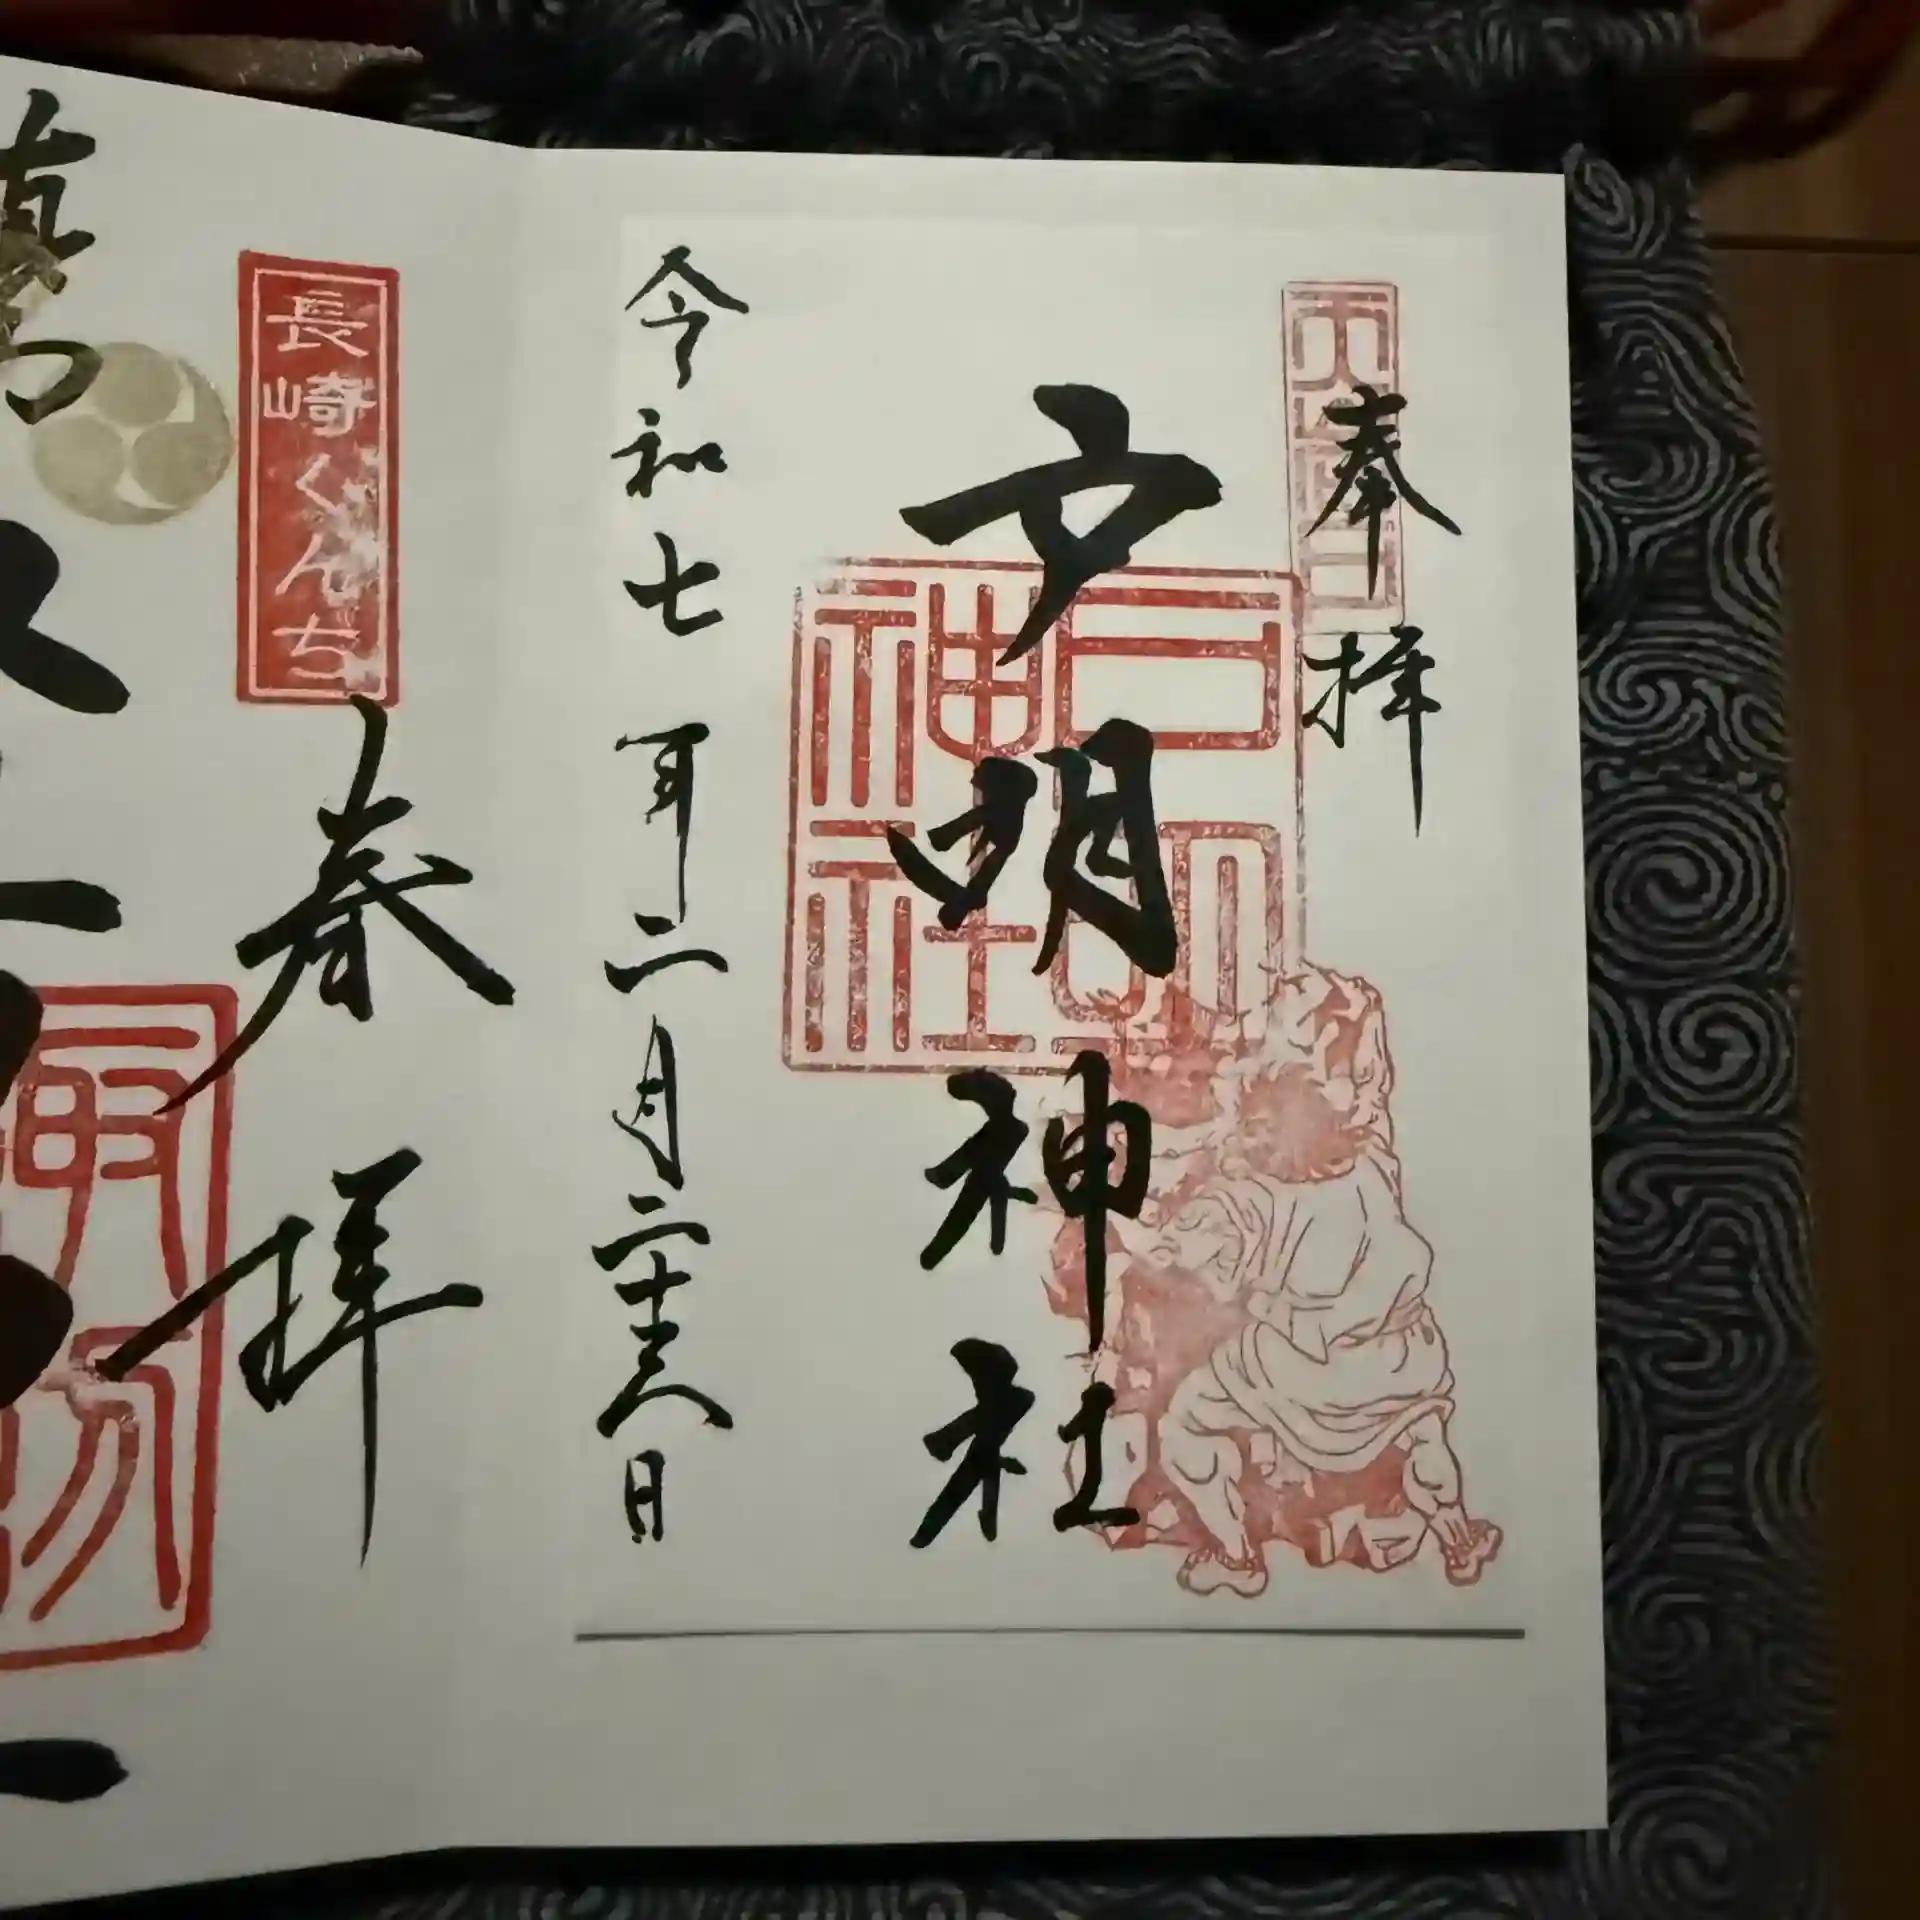 奉拝
戸明神社
戸明神社
令和七年二月二十六日
長崎くんち
奉拝